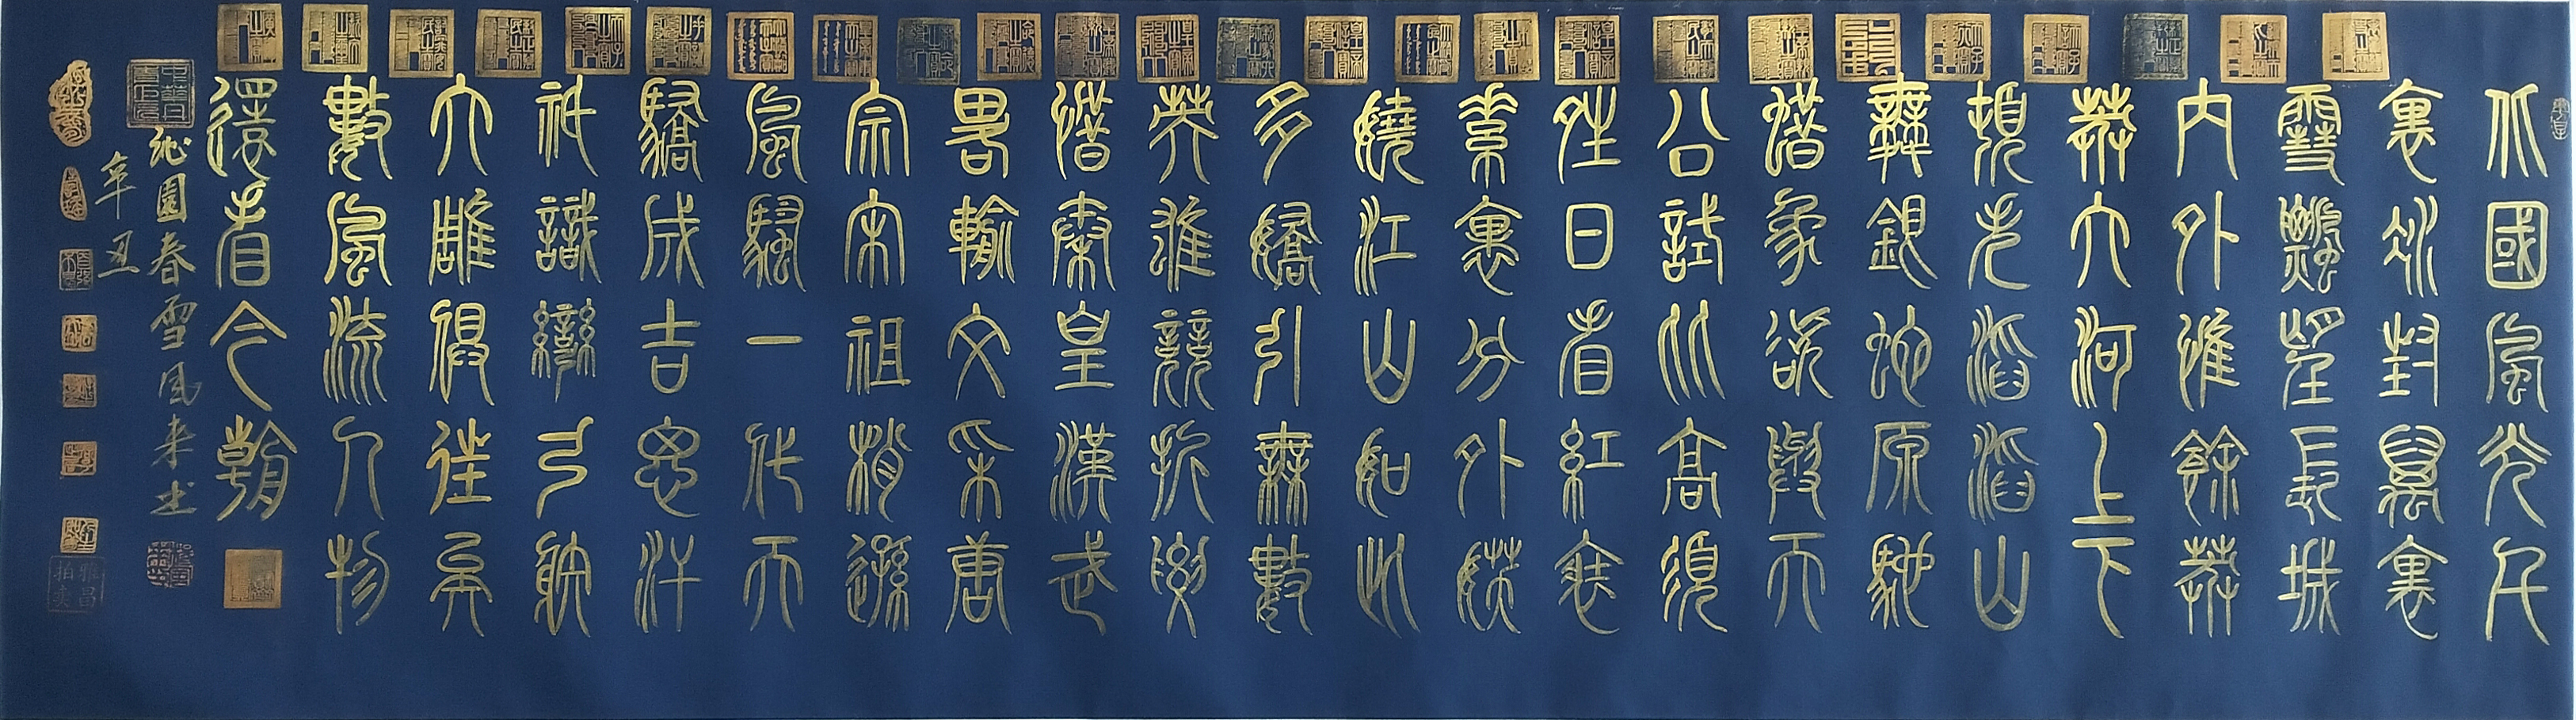 北國風光千
裏冰封萬裏
雪飄望長城
内外惟餘莽
莽大河上下
頓失滔滔山
舞銀蛇原馳
蠟象欲與天
公試比高須
晴日看紅裝
素裹分外妖
嬈江山如此
多嬌引無數
英雄競折腰
惜秦皇漢武
畧輸文采唐
宗宋祖稍遜
風騷一代天
驕成吉思汗
祇識彎弓射
大雕俱往矣
數風流人物
還看今朝
沁園春雪風来书
辛丑
雅昌拍卖